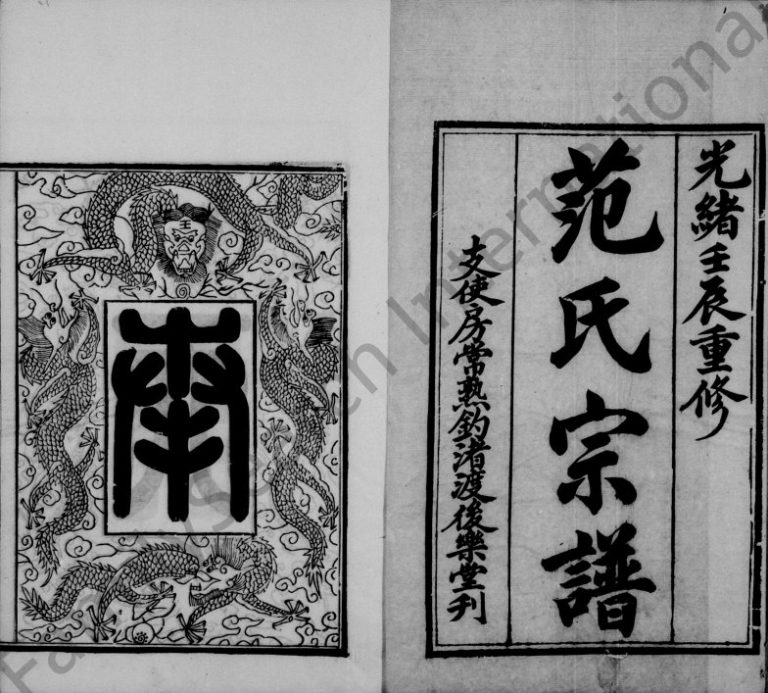 光緒壬辰重修
范氏宗譜
支使房常熟釣渚渡後樂堂刊
奉
FamilySearch International